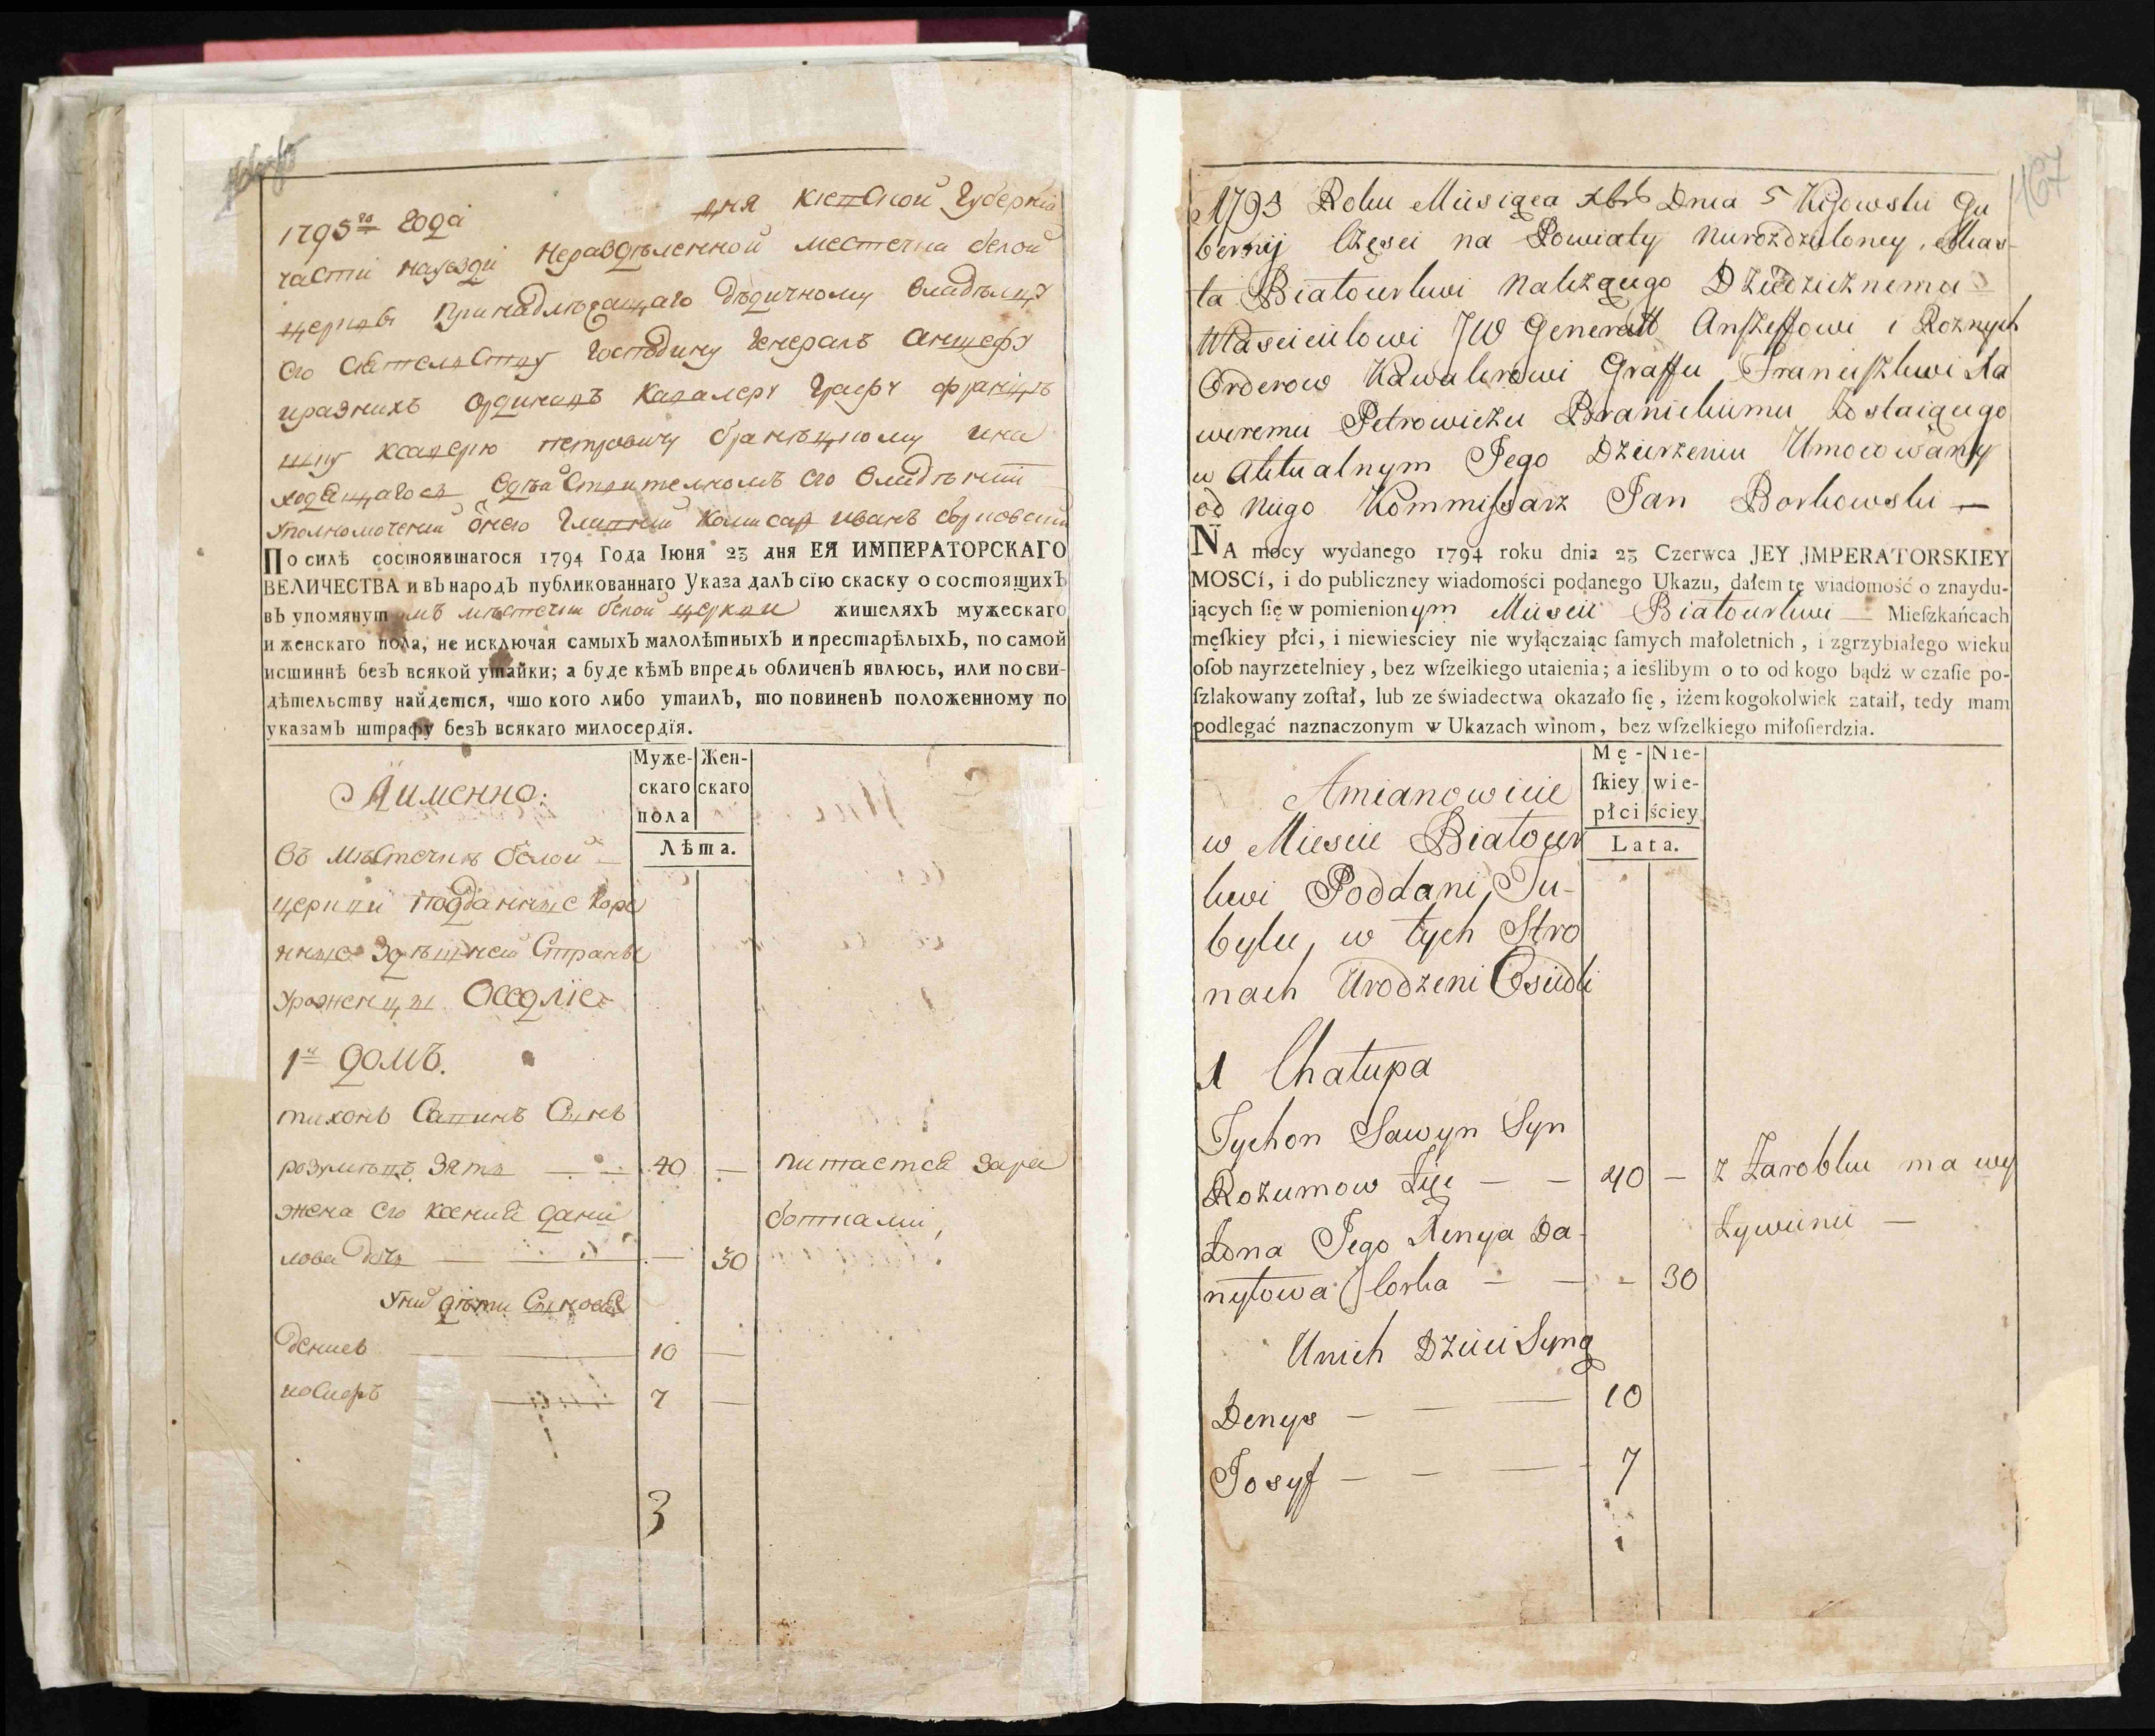 1795го года дня киевской губерніи
части науезди неразделенной местечки белой
церкви принадлежащаго дѣдичному владелцу
его сиятелству господину генералъ аншефу
иразнихъ ординовъ кавалеру графу францѣ
шку ксаверию петровичу браницкому ина
ходящагося вдѣйствителномъ его владѣнии
уполномоченни онего главний комисар иванъ борковский
По силѣ состоявшагося 1794 Года Іюня 23 дня ЕЯ ИМПЕРАТОРСКАГО
ВЕЛИЧЕСТВА и въ народъ публикованнаго Указа далъ сїю скаску о состоящихъ
въ упомянутомъ мѣстечки белой церкви жителяхъ мужескаго
и женскаго пола, не исключая самыхъ малолѣтныхъ и престарѣлыхъ, по самой
истиннѣ безъ всякой утайки; а буде кѣмъ впредь обличенъ явлюсь, или по сви-
дѣтельству найдется, что кого либо утаилъ, то повиненъ положенному по
указамъ штрафу безъ всякаго милосердїя.
Муже- Жен-
скаго скаго
пола
Лѣта.
Аименно:
въ мѣстечкѣ белой
церкви подданние коре
нние здѣшней страны
уроженци Оседліе
1й домъ.
тихонъ Савинъ Синъ
розумовъ зять — — 40 — питается зара
жена его ксения дани ботками,
лова дочь — — — 30
уних дѣти Синовя
денис — 10 —
иосифъ — 7 —
3
467
1795 Roku Miesiąca Xbra Dnia 5 Kijowski Gu
bernij Części na Powiaty Nierozdzieloney, Mias-
ta Białocerkwi Należącego Dziedzicznemu
Właścicielowi JW Generałł Anszeffowi i Roznych
Orderow Kawalerowi Graffu Franciszkowi Xa
weremu Petrowiczu Branickiemu Zostaiącego
w Aktualnym Jego Dzierzeniu Umocowany
od Niego Kommissarz Jan Borkowski —
NA mocy wydanego 1794 roku dnia 23 Czerwca JEY JMPERATORSKIEY
MOSCí, i do publiczney wiadomości podanego Ukazu, dałem tę wiadomość o znaydu-
iących ſię w pomienionym Miescie Białocerkwi — Mieſzkańcach
męſkiey płci, i niewieściey nie wyłączaiąc ſamych małoletnich, i zgrzybiałego wieku
oſob nayrzetelniey, bez wſzelkiego utaienia; a ieślibym o to od kogo bądź w czaſie po-
ſzlakowany zoſtał, lub ze świadectwa okazało ſię, iżem kogokolwiek zataił, tedy mam
podlegać naznaczonym w Ukazach winom, bez wſzelkiego miłoſierdzia.
Mę- Nie-
ſkiey wie-
płci ściey
Lata.
Amianowicie
w Miescie Białocer
kwi Poddani Tu-
bylcy w tych Stro
nach Urodzeni Osiedli
1 Chałupa
Tychon Sawyn Syn
Rozumow Zięć — — 40 — z Zarobku ma wy
Żona Jego Xenya Da- Żywienie —
nyłowa Corka — — - 30
Unich Dzieci Syny
Denys — — — 10
Josyf — — — 7